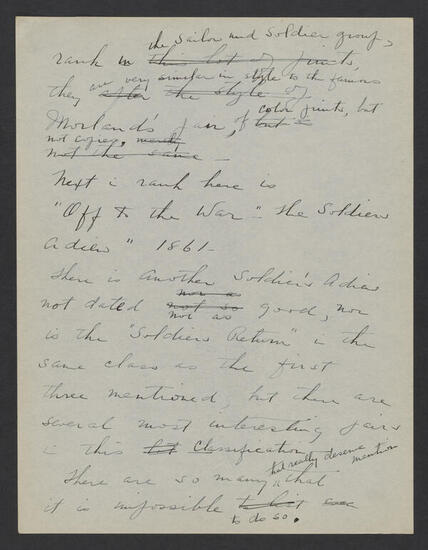 the Sailor and Soldier group,
rank in this lot of prints,
are very similar in style to the famous
they after the style of
color prints, but
Morland's pair, of but
not copies, merely
not the same –
Next i rank here is
"Off to the War" – the Soldiers
adieu" 1861–
There is another Soldier's Adieu
nor a
not dated not so good, nor
nor as
is the "Soldiers Return" in the
same class as the first
three mentioned, but there are
several most interesting pairs
in this lot classification
that really deserve
mention
There are so many that
it is impossible to list
to do so.